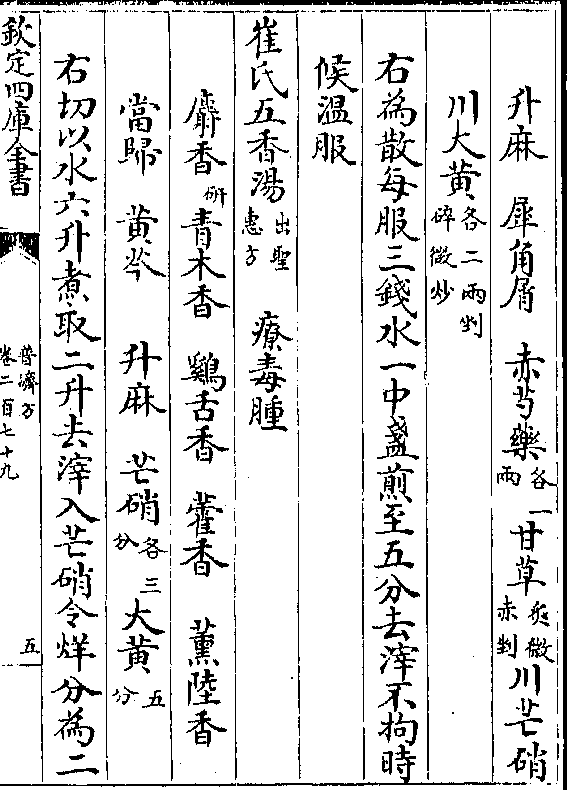 升麻　犀角屑　赤芍藥各一兩　甘草炙微赤剉　川芒硝
川大黄各二兩剉碎微炒
右為散每服三錢水一中盞煎至五分去滓不拘時
候温服
崔氏五香湯出聖惠方　療毒腫
麝香研　青木香　鷄舌香　藿香　薫陸香
當歸　黄芩　升麻　芒硝各三分　大黄五分
右切以水六升煮取二升去滓入芒硝令烊分為二
欽定四庫全書
普濟方
卷二百七十九
五